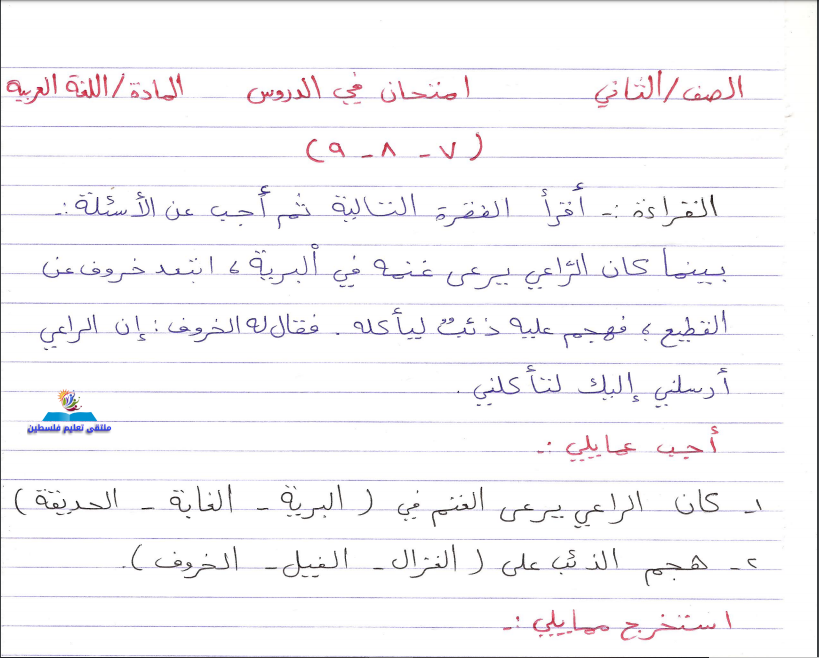 الصف/الثاني امتحان في الدروس المادة/اللغة العربية
(٧ - ٨ - ٩)
القراءة :- أقرأ الفقرة التالية ثم أجب عن الأسئلة :-
بينما كان الراعي يرعى غنمه في البرية ، ابتعد خروف عن
القطيع ، فهجم عليه ذئب ليأكله . فقال له الخروف : إن الراعي
أرسلني إليك لتأكلني .
ملتقى تعليم فلسطين
أجب عمايلي :-
١- كان الراعي يرعى الغنم في ( البرية - الغابة - الحديقة )
٢- هجم الذئب على ( الغزال - الفيل - الخروف ).
استخرج ممايلي :-